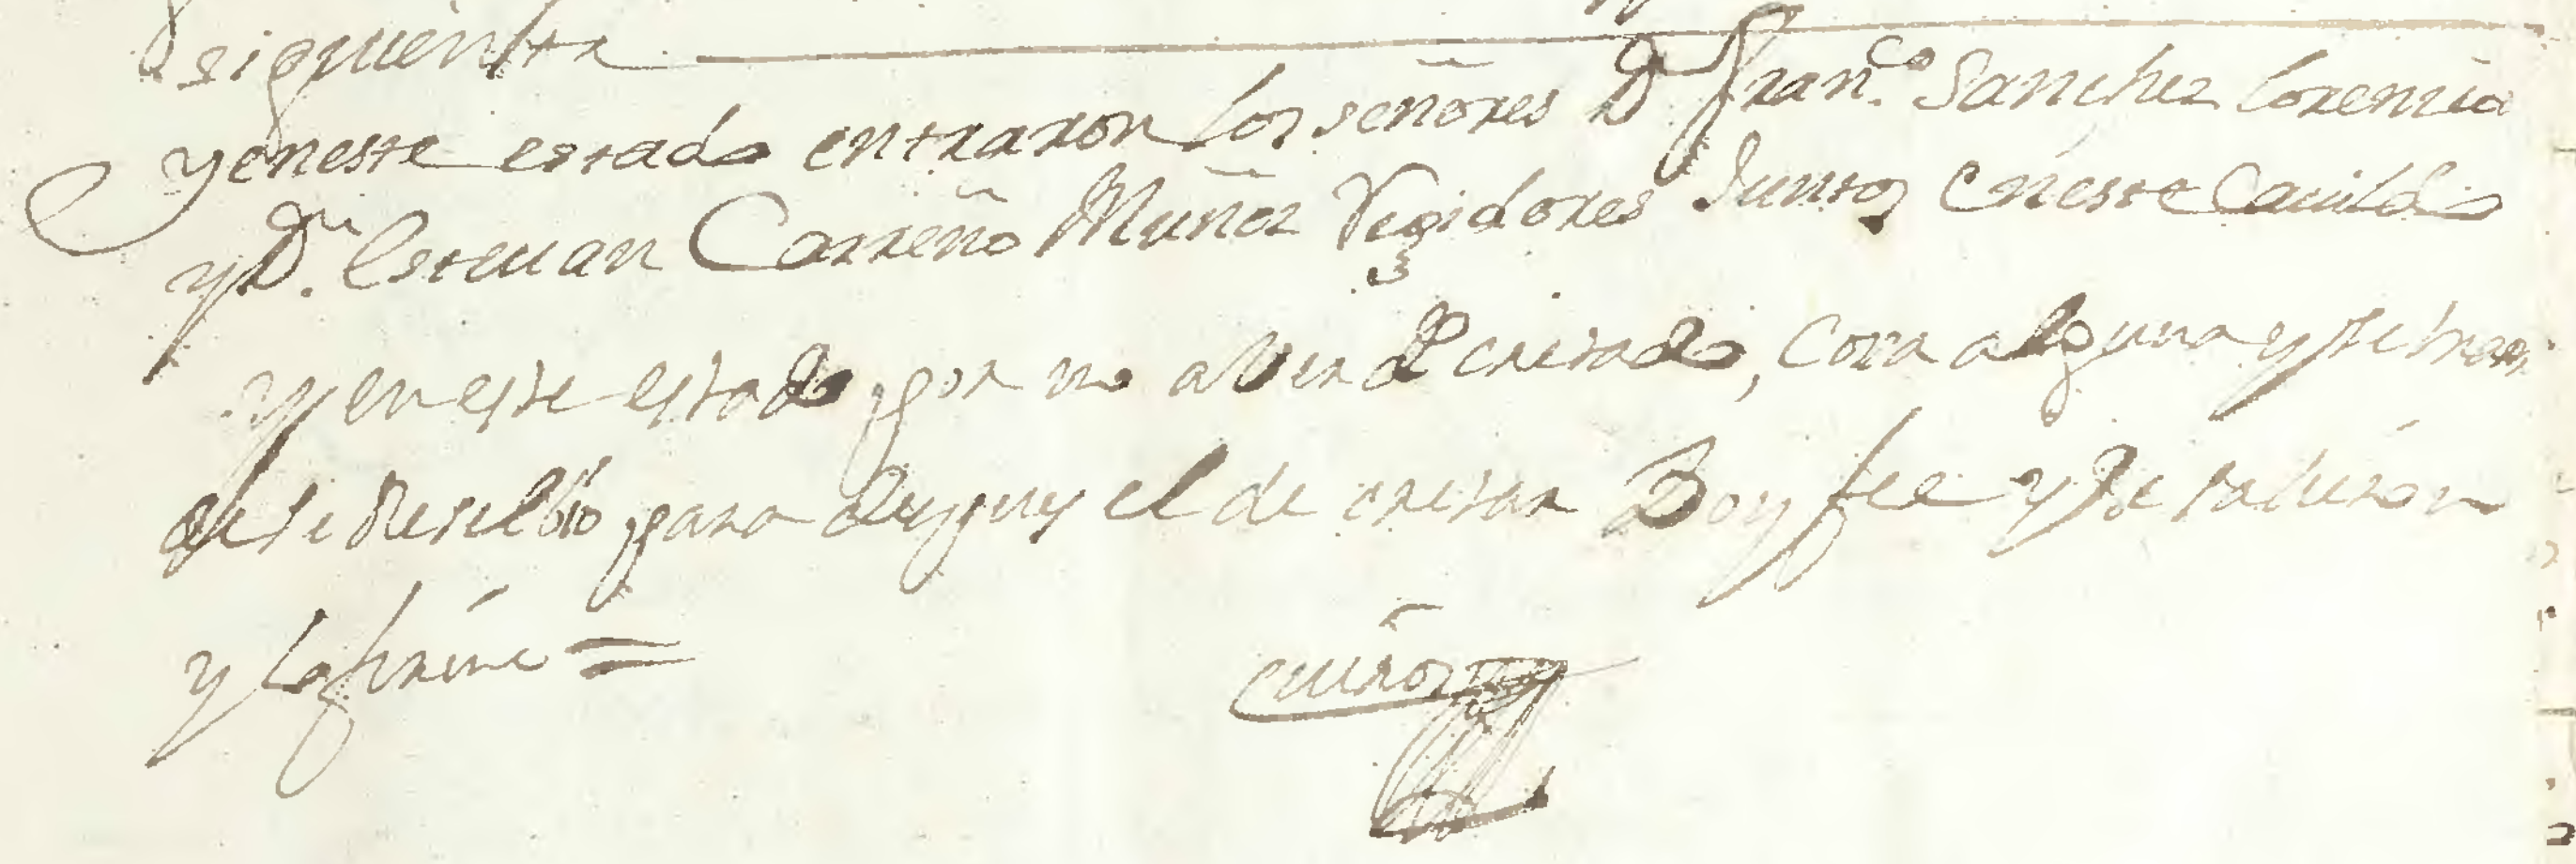 siguiente
y eneste estado entraron los señores Dn Franco. Sanchez lorencio
y Dn. Esteuan Carreño Muñoz Regidores Juntos eneste Cauildo
y en este estado por no aver decretado, cosa alguna y
se reselbio para despues el decretar Doy fee y se salieron
y lo firme =